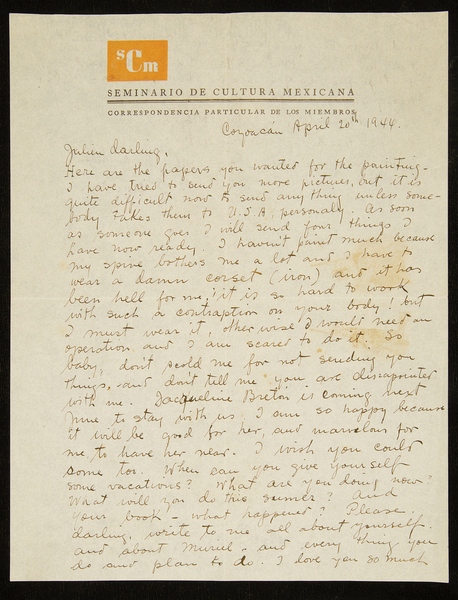 sCm
SEMINARIO DE CULTURA MEXICANA
CORRESPONDENCIA PARTICULAR DE LOS MIEMBROS
Coyoacán April 20th 1944.
Julien darling,
Here are the papers you wanted for the painting-
I have tried to send you more pictures, but it is
quite difficult now to send anything unless some-
body takes them to U.S.A. personally. As soon
as someone goes I will send four things I
have now ready. I haven't paint much because
my spine bothers me a lot and I have to
wear a damn corset (iron) and it has
been hell for me! it is so hard to work
with such a contraption on your body! but
I must wear it, other wise I would need an
operation and I am scared to do it. So
baby, don't scold me for not sending you
things, and don't tell me you are disappointed
with me. Jacqueline Breton is coming next
June to stay with us, I am so happy because
it will be good for her, and marvelous for
me, to have her near. I wish you could
come too. When can you give yourself
some vacations? What are you doing now?
What will you do this summer? And
your book - what happened? Please
darling, write to me all about yourself.
and about Muriel, and every thing you
do and plan to do. I love you so much